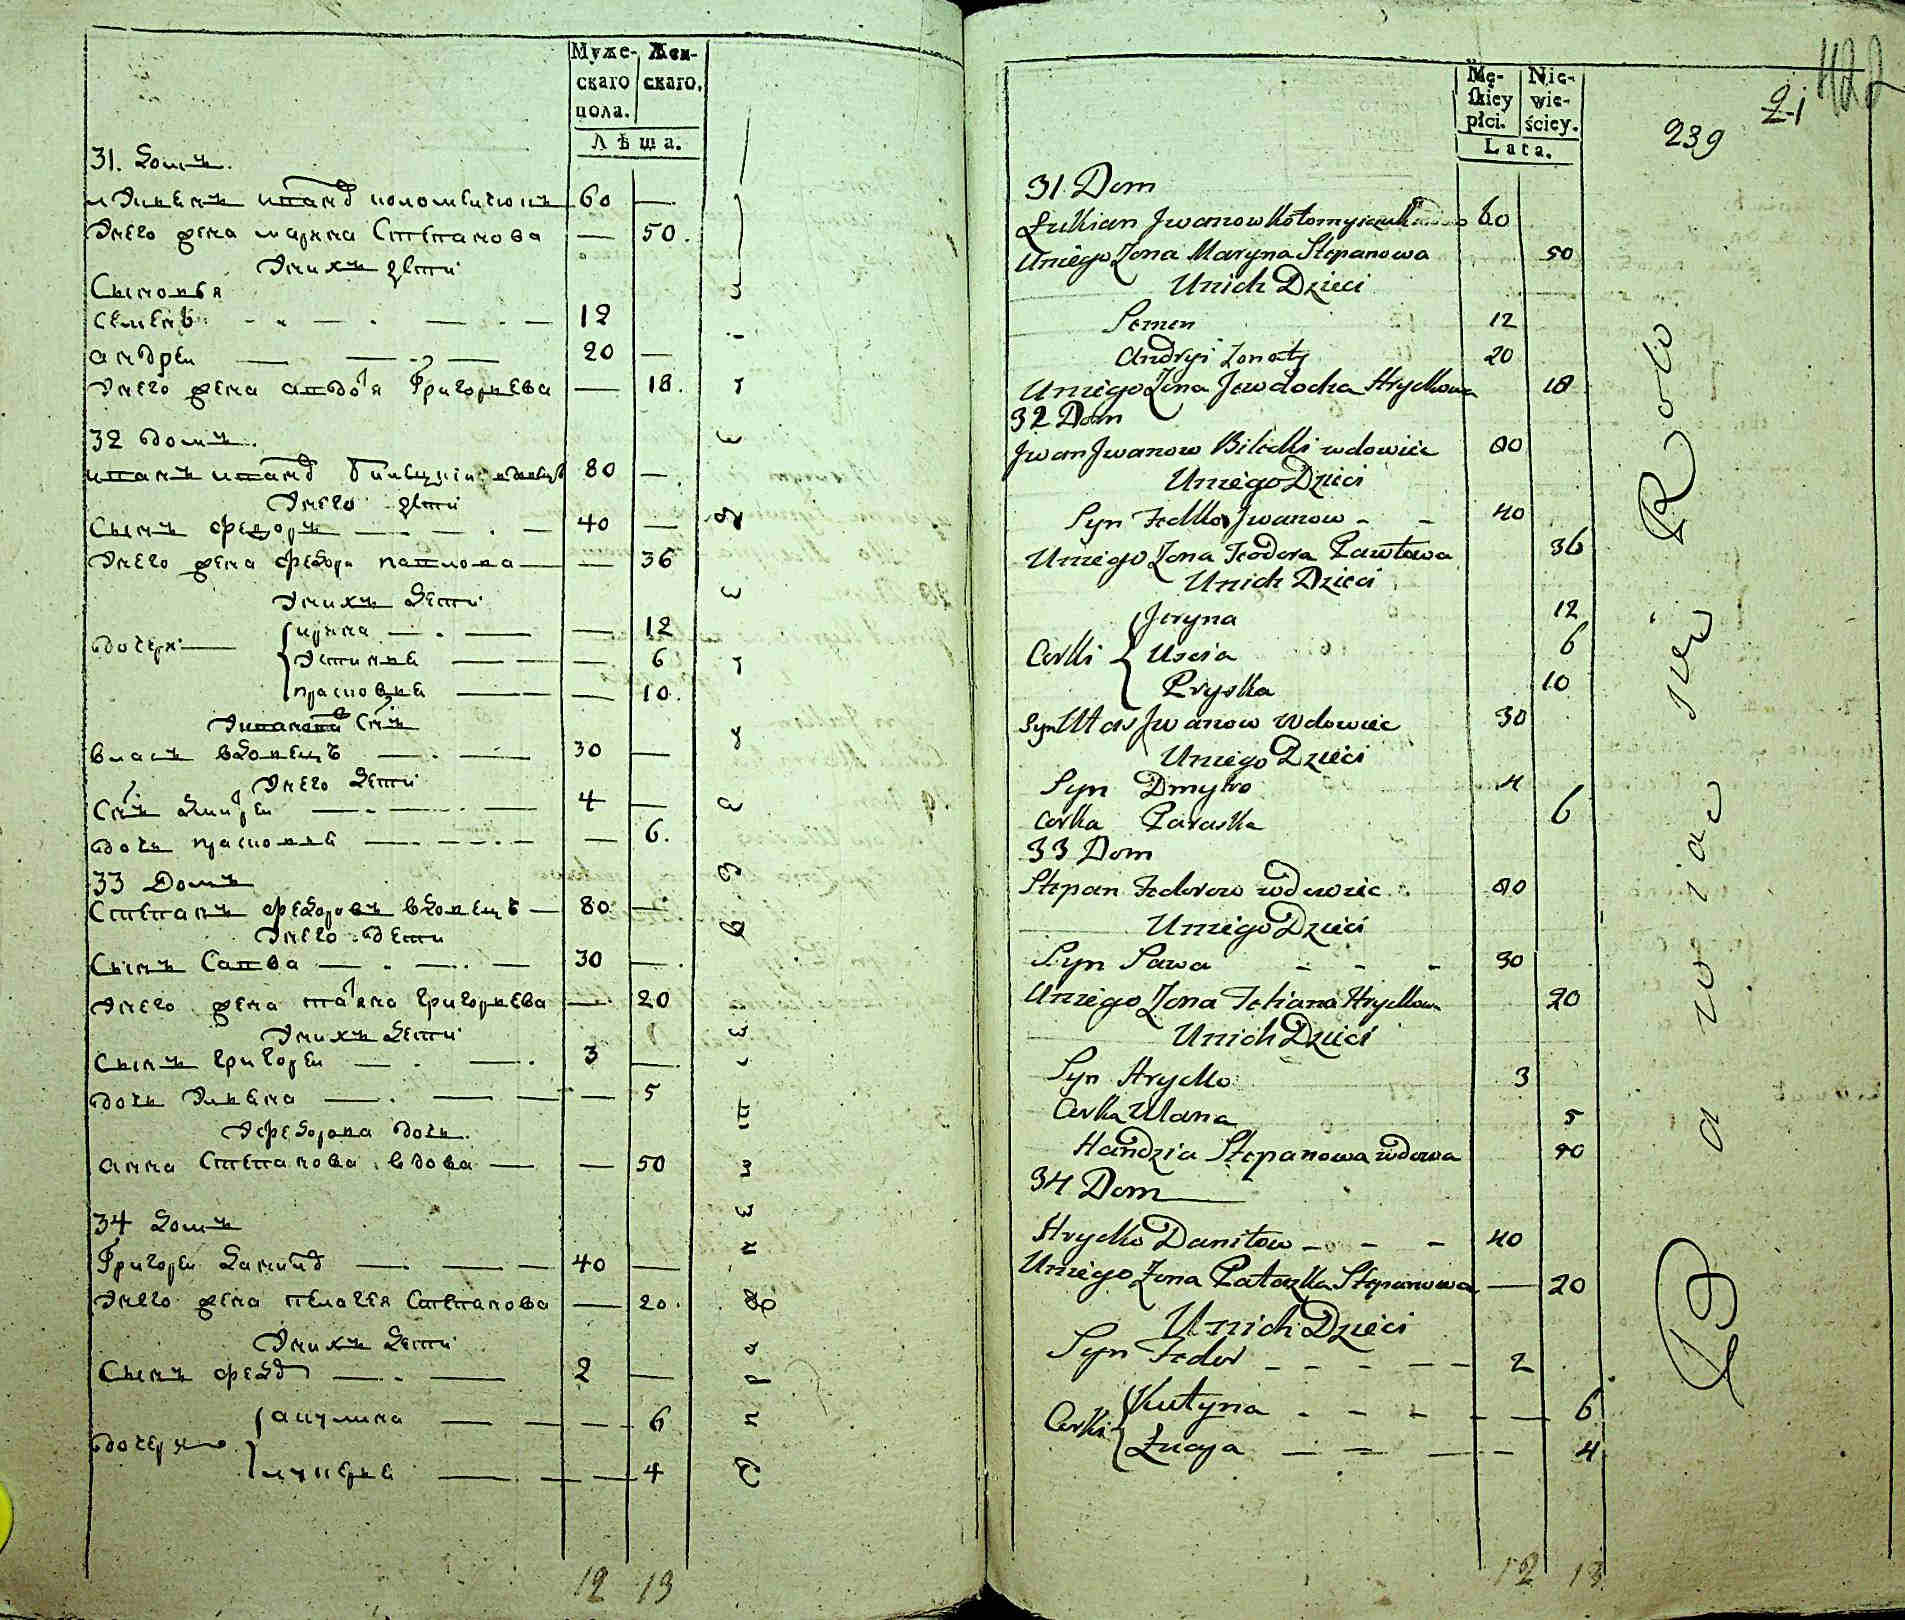 Муже- Жен-
скаго скаго.
пола.
Лѣта.
31. Домъ.
60 —
Унего жена марина Степанова — 50.
Унихъ дети
Сыновья
Семенъ 12
андреи 20 —
Унего жена авдотя Григориева — 18.
32 домъ.
иванъ иванов билецкiи вдовецъ 80 —
Унего дети
Сынъ федоръ 40 —
Унего жена федора павлова — 36
Унихъ Дети
ирина — 12
дочери
Устинка — 6
прасковка — 10.
Сынъ
власъ вдовецъ 30 —
Унего Дети
Сынъ Дмитреи 4 —
дочь прасковка — 6.
33 Домъ
Степанъ федоровъ вдовецъ — 80 —
Унего дети
Сынъ Савва 30 —
Унего жена татяна григориева — 20
Унихъ Дети
Сынъ григореи 3 —
дочь Уляна — 5
дочь.
анна Степанова вдова — 50
34 Домъ
Григореи Данилов 40 —
Унего жена пелагея Степанова — 20.
Унихъ Дети
Сынъ федор 2 —
акулина — 6
дочери
лукерка — 4
12 13
Mę- Nie-
skiey wie-
płci. ściey.
Lata.
239
21
422
31 Dom
Łukian Jwanow Kołomyiczuk 60
Uniego Zona Maryna Stepanowa 50
Unich Dzieci
Semen 12
Andryi Zonaty 20
Uniego Zona Jewdocha Hryckowa 18
32 Dom
Jwan Jwanow Bilecki wdowiec 80
Uniego Dzieci
Syn Fedko Jwanow - - 40
Uniego Zona Teodora Pawłowa 36
Unich Dzieci
Jeryna 12
Corki Uscia 6
Pryska 10
Syn Włas Jwanow Wdowiec 30
Uniego Dzieci
Syn Dmytro 4
Corka Paraska 6
33 Dom
Stepan Fedorow wdowiec 80
Uniego Dzieci
Syn Sawa - - - 30
Uniego Zona Tetiana Hryckowa 20
Unich Dzieci
Syn Hrycko 3
Corka Ulana 5
Handzia Stepanowa wdowa 40
34 Dom
Hrycko Daniłow - - - 40
Uniego Zona Pałazka Stepanowa — 20
Unich Dzieci
Syn Fedor - - - - - 2
Kułyna - - - - — 6
Corki
Łucya — — — - 4
12 13